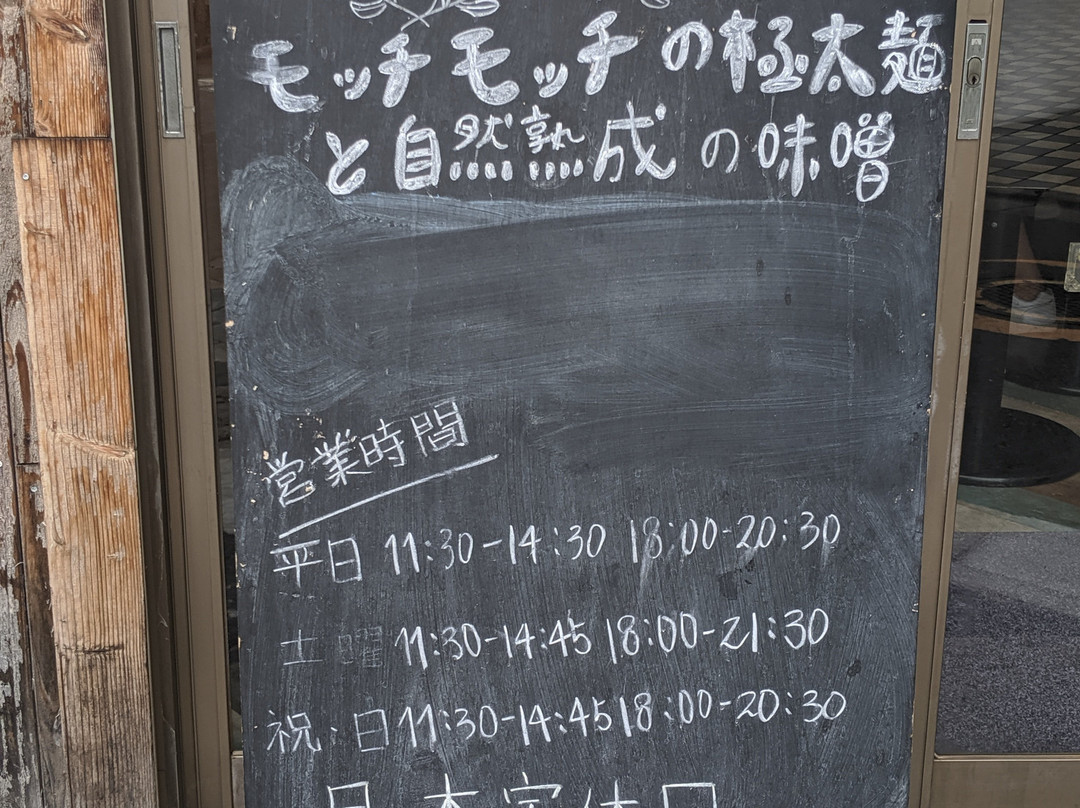 モッチモッチの極太麺
と自然熟成の味噌
営業時間
平日 11:30-14:30 18:00-20:30
土曜 11:30-14:45 18:00-21:30
祝・日 11:30-14:45 18:00-20:30